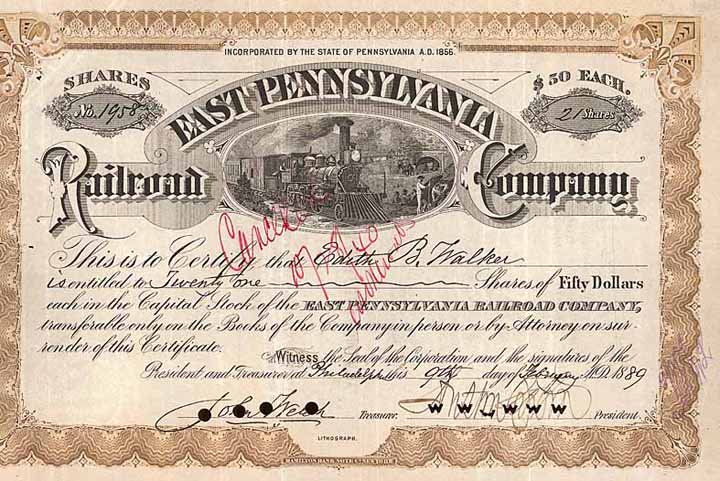 INCORPORATED BY THE STATE OF PENNSYLVANIA A.D. 1856.
SHARES
$50 EACH.
No. 1958
21 Shares
EAST PENNSYLVANIA
Railroad Company
This is to Certify that Edith B. Walker
is entitled to Twenty one Shares of Fifty Dollars
each in the Capital Stock of the EAST PENNSYLVANIA RAILROAD COMPANY,
transferable only on the Books of the Company in person or by Attorney on sur-
render of this Certificate.
Witness the Seal of the Corporation and the signatures of the
President and Treasurer at Philadelphia this 9th day of February A.D. 1889
John Welch Treasurer. President.
LITHOGRAPH.